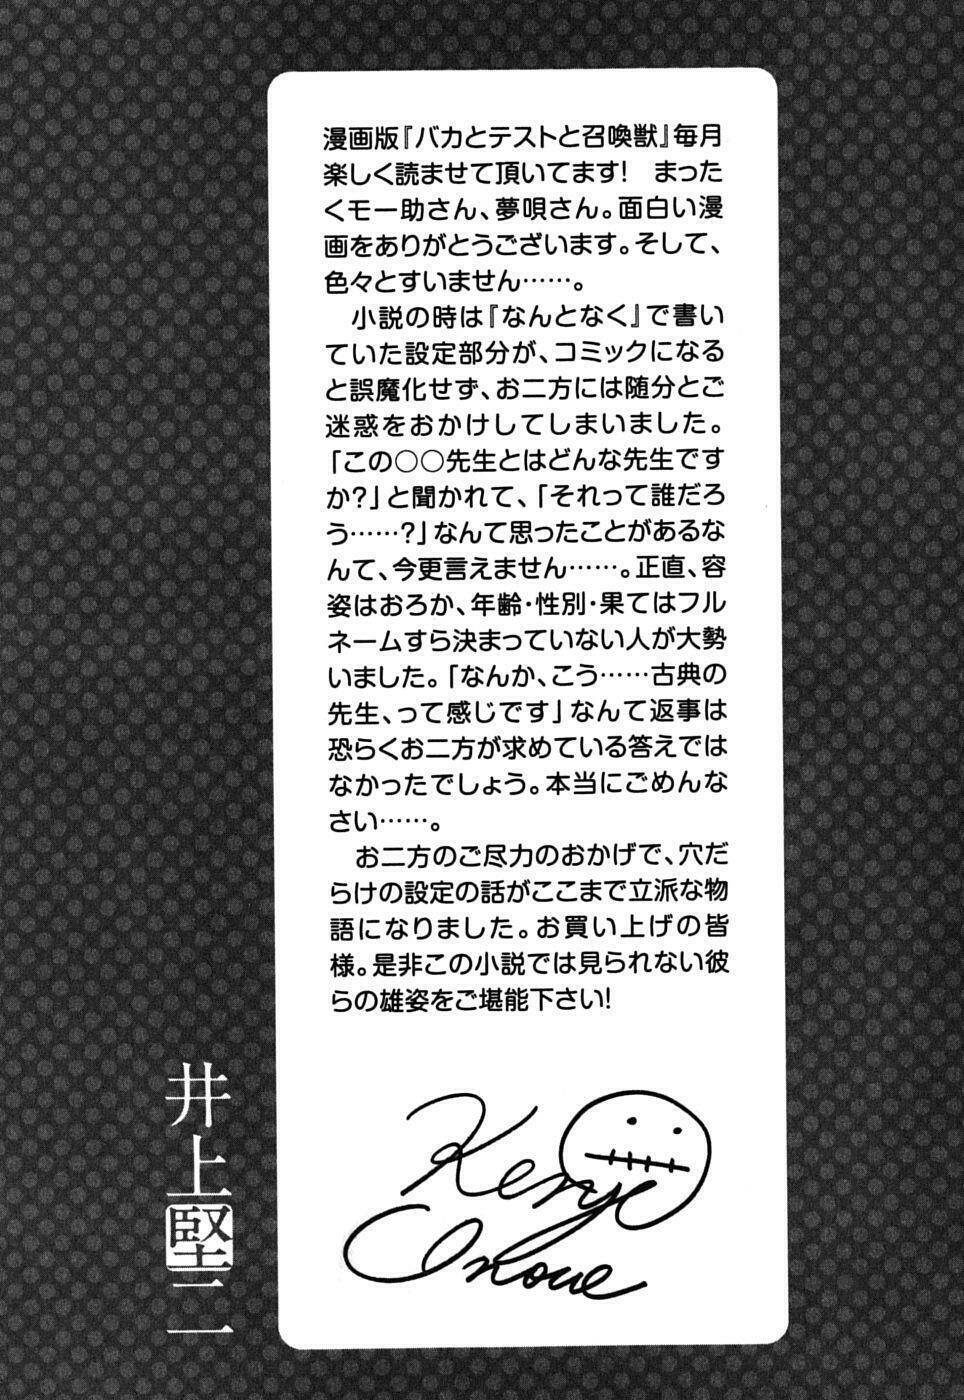 漫画版『バカとテストと召喚獣』毎月
楽しく読ませて頂いてます!　まった
くモー助さん、夢唄さん。面白い漫
画をありがとうございます。そして、
色々とすいません……。
　小説の時は『なんとなく』で書い
ていた設定部分が、コミックになる
と誤魔化せず、お二方には随分とご
迷惑をおかけしてしまいました。
「この○○先生とはどんな先生です
か?」と聞かれて、「それって誰だろ
う……?」なんて思ったことがあるな
んて、今更言えません……。正直、容
姿はおろか、年齢・性別・果てはフル
ネームすら決まっていない人が大勢
いました。「なんか、こう……古典の
先生、って感じです」なんて返事は
恐らくお二方が求めている答えでは
なかったでしょう。本当にごめんな
さい……。
　お二方のご尽力のおかげで、穴だ
らけの設定の話がここまで立派な物
語になりました。お買い上げの皆
様。是非この小説では見られない彼
らの雄姿をご堪能下さい!
Kenji
Inoue
井上堅二